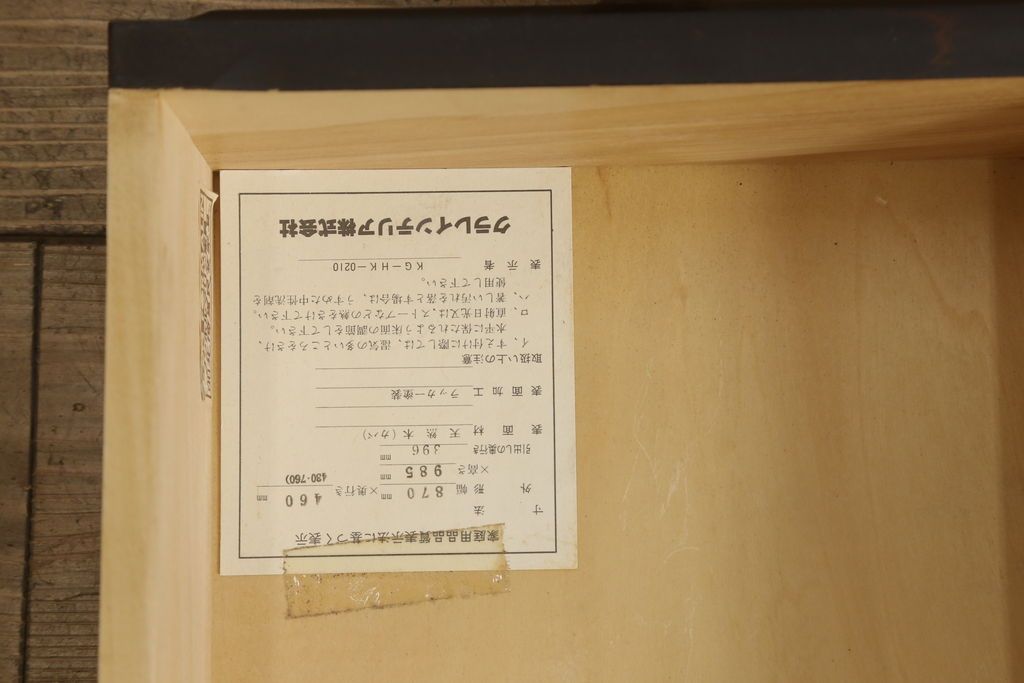 家庭用品品質表示法に基づく表示
寸法
外形 幅 870mm ×奥行き 460mm
×高さ 985mm (430·760)
引出しの奥行き 396mm
表面材 天然木(カバ)
表面加工 ラッカー塗装
取扱い上の注意
イ、すえ付けに際しては、湿気の多いところをさけ、
水平に保たれるよう床面の調節をして下さい。
ロ、直射日光又は、ストーブなどの熱をさけて下さい。
ハ、著しい汚れを落とす場合は、うすめた中性洗剤を
使用して下さい。
表示者 KG-HK-0210
クラレインテリア株式会社